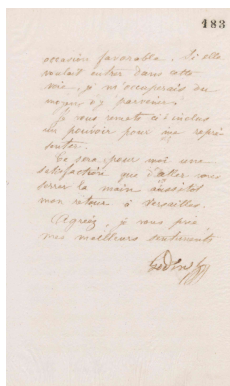 183
occasion favorable. Si elle
voulait entrer dans cette
voie, je m'occuperais du
moyen d'y parvenir.
Je vous remets ci-inclus
un pouvoir pour me repré
senter.
Ce sera pour moi une
satisfaction que d'aller vous
serrer la main aussitôt
mon retour à Versailles.
Agréez, je vous prie
mes meilleurs sentiments
Godin